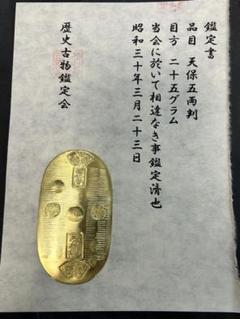 鑑定書
品目 天保五両判
目方 二十五グラム
当会に於いて相違なき事鑑定済也
昭和三十年三月二十三日
歴史古物鑑定会